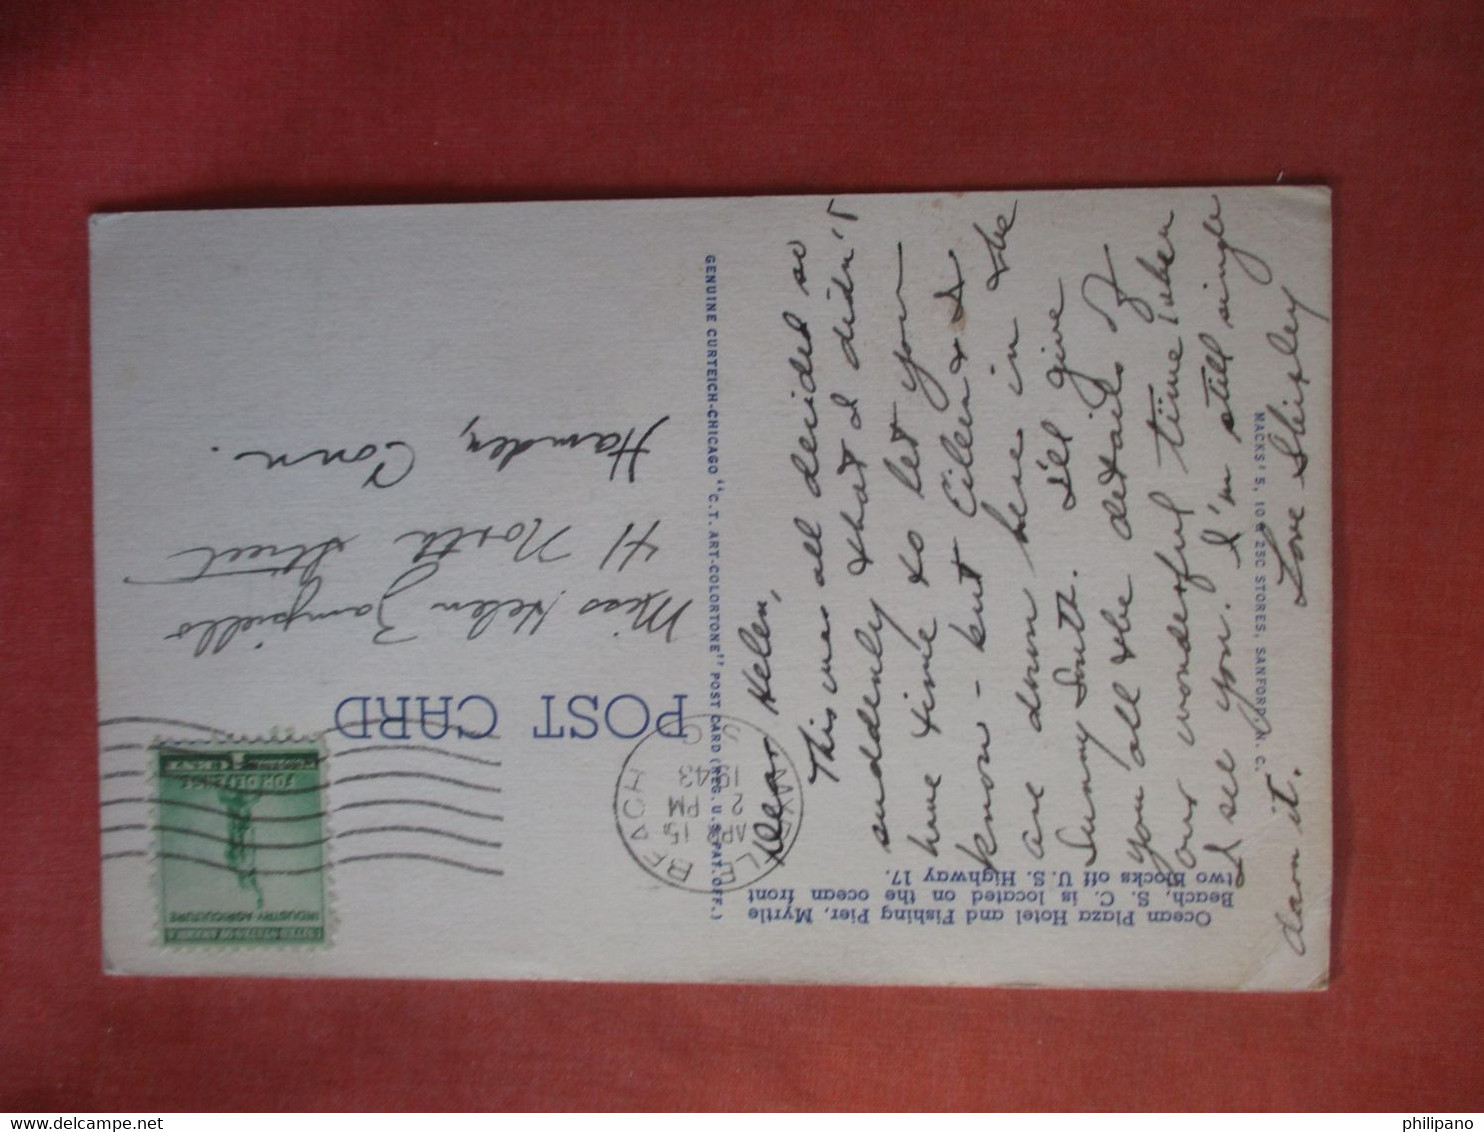 Ocean Plaza Hotel and Fishing Pier, Myrtle
Beach, S. C. is located on the ocean front
two blocks off U. S. Highway 17.
POST CARD
GENUINE CURTEICH-CHICAGO "C.T. ART-COLORTONE" POST CARD (REG. U.S. PAT. OFF.)
MACKS' 5, 10 & 25C STORES, SANFORD, N. C.
UNITED STATES OF AMERICA
INDUSTRY AGRICULTURE
FOR DEFENSE
1 CENT
BEACH
APR
2
1943
15
PM
S C
Dear Helen,
This was all decided so
suddenly that I didn't
have time to let you
know - but Eileen & I
are down here in the
Sunny South. I'll give
you all the details of
our wonderful time when
I see you. I'm still single
darn it.
Love Shirley
Miss Helen Zampiello
41 North Street
Hamden, Conn.
philipano